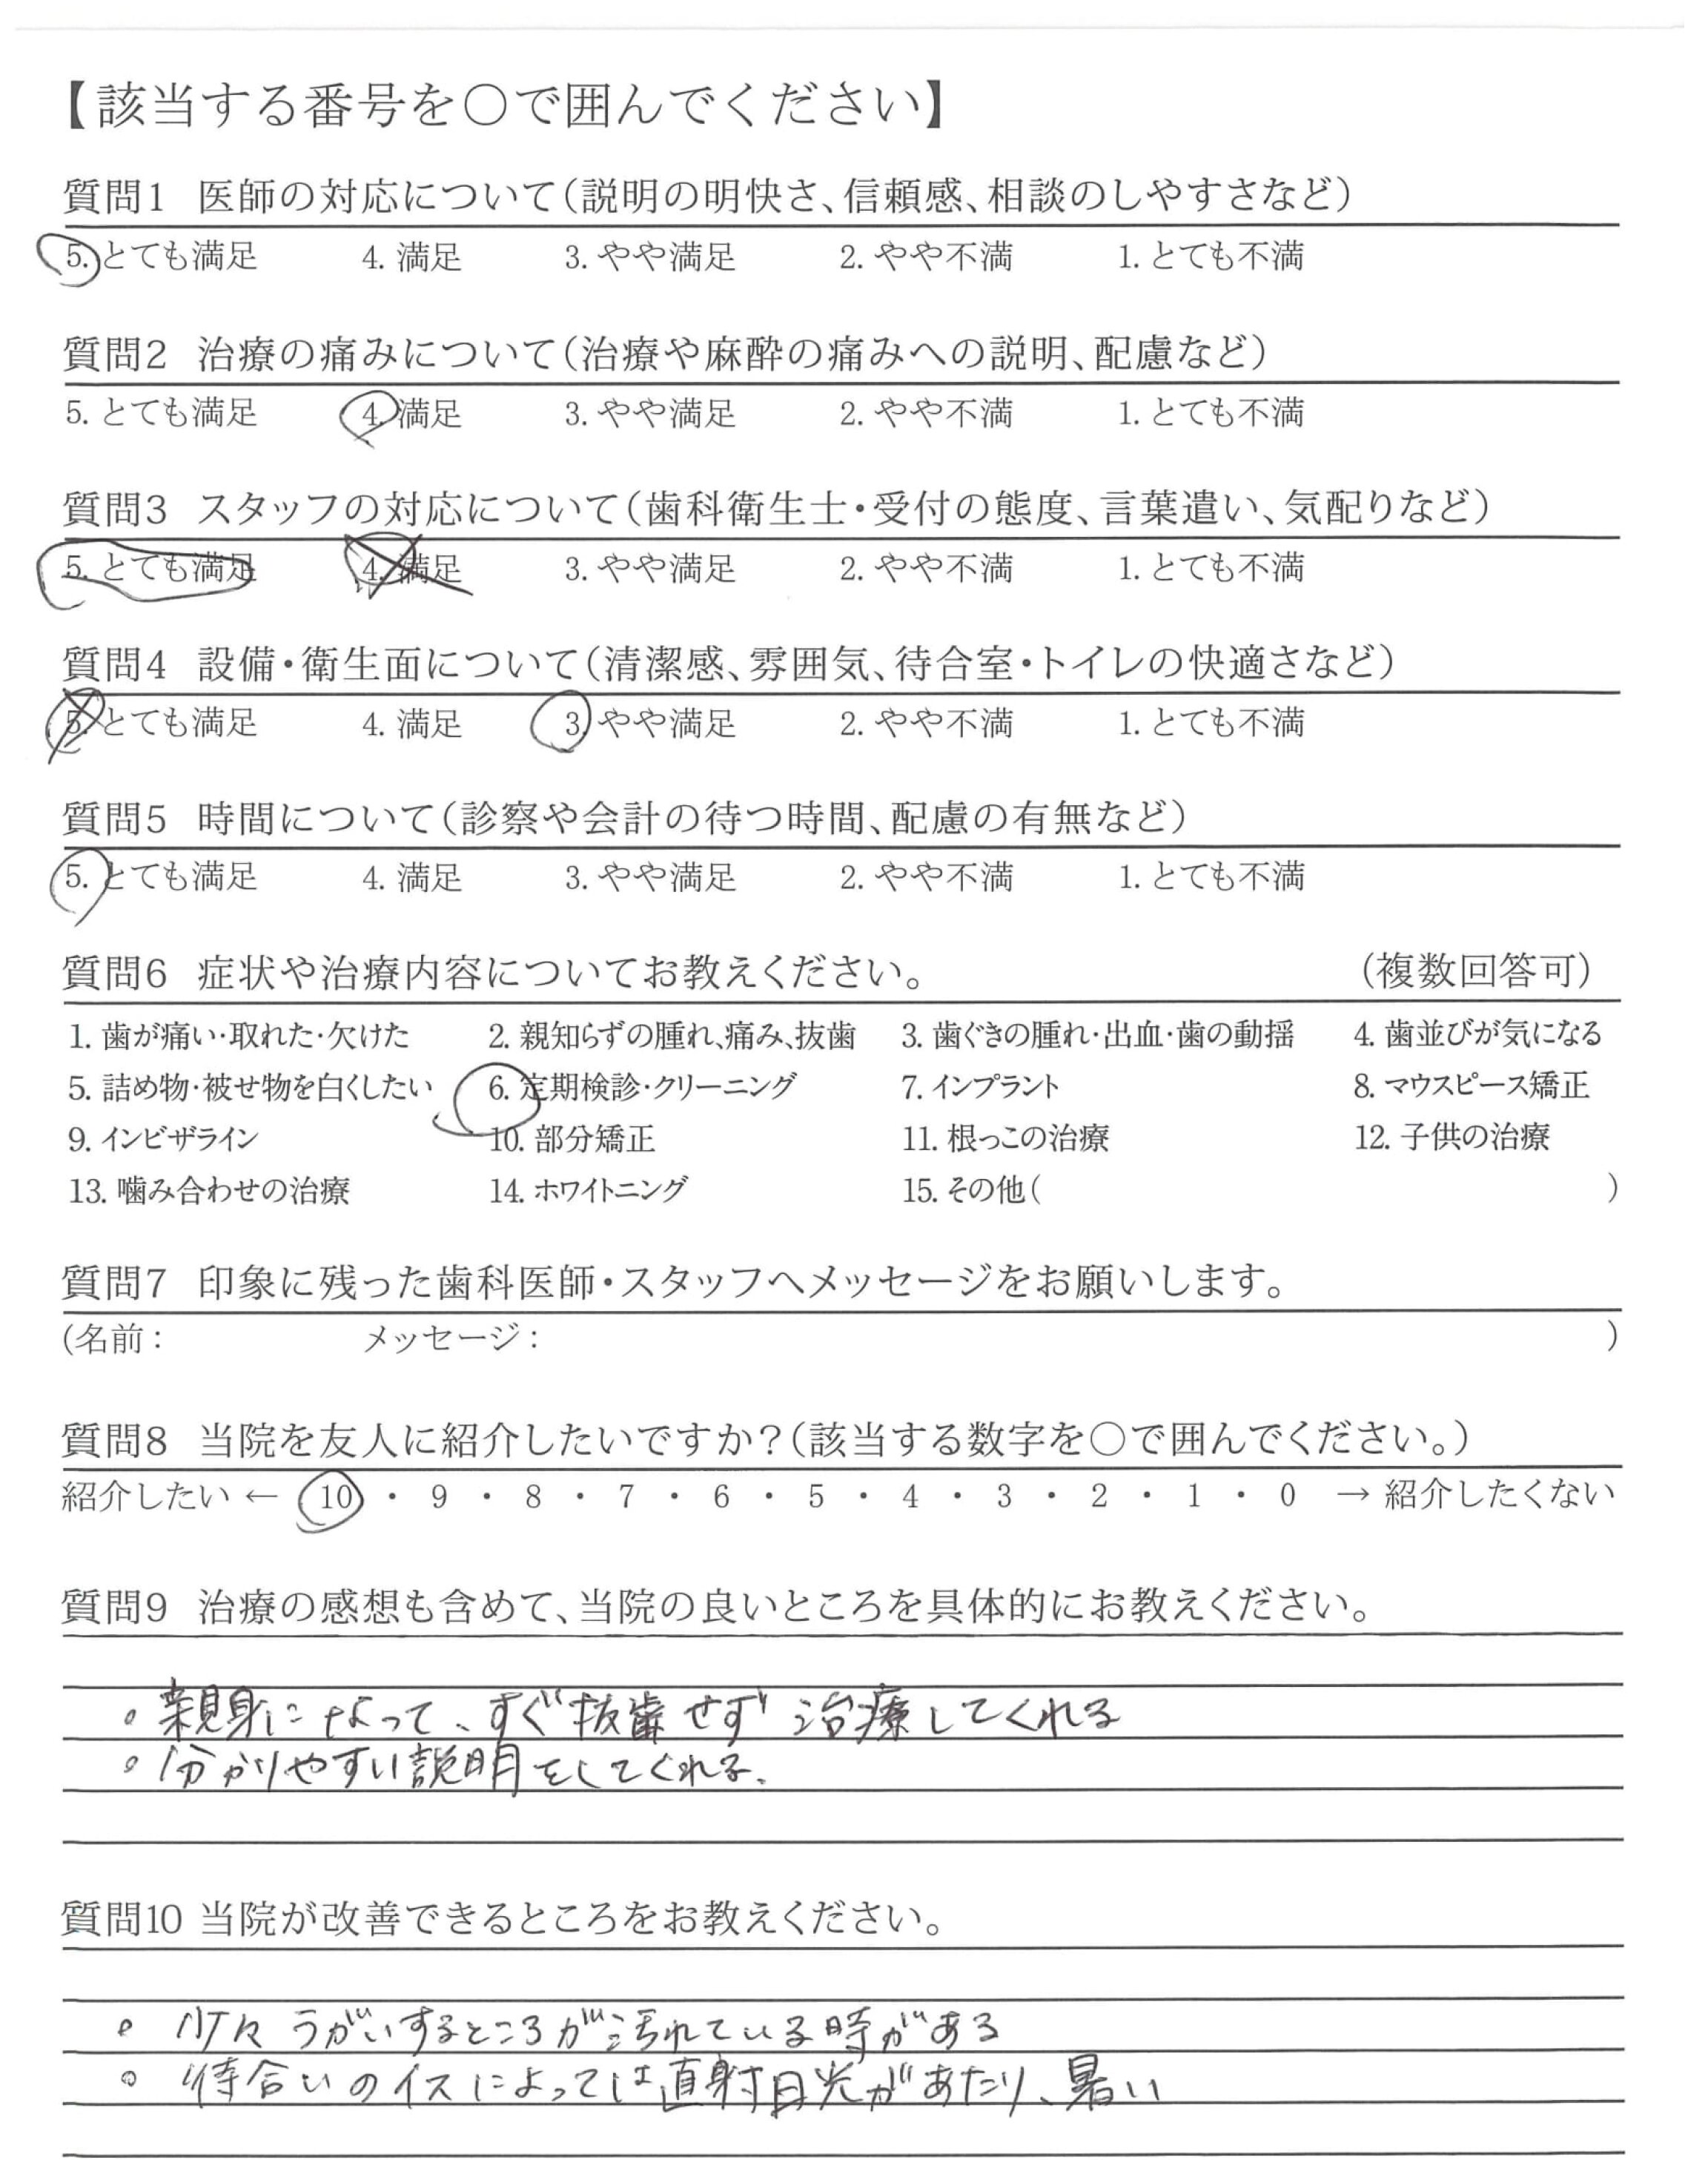 【該当する番号を○で囲んでください】
質問1 医師の対応について(説明の明快さ、信頼感、相談のしやすさなど)
5. とても満足 4. 満足 3. やや満足 2. やや不満 1. とても不満
質問2 治療の痛みについて(治療や麻酔の痛みへの説明、配慮など)
5. とても満足 4. 満足 3. やや満足 2. やや不満 1. とても不満
質問3 スタッフの対応について(歯科衛生士・受付の態度、言葉遣い、気配りなど)
5. とても満足 4. 満足 3. やや満足 2. やや不満 1. とても不満
質問4 設備・衛生面について(清潔感、雰囲気、待合室・トイレの快適さなど)
5. とても満足 4. 満足 3. やや満足 2. やや不満 1. とても不満
質問5 時間について(診察や会計の待つ時間、配慮の有無など)
5. とても満足 4. 満足 3. やや満足 2. やや不満 1. とても不満
質問6 症状や治療内容についてお教えください。 (複数回答可)
1. 歯が痛い・取れた・欠けた 2. 親知らずの腫れ、痛み、抜歯 3. 歯ぐきの腫れ・出血・歯の動揺 4. 歯並びが気になる
5. 詰め物・被せ物を白くしたい 6. 定期検診・クリーニング 7. インプラント 8. マウスピース矯正
9. インビザライン 10. 部分矯正 11. 根っこの治療 12. 子供の治療
13. 噛み合わせの治療 14. ホワイトニング 15. その他( )
質問7 印象に残った歯科医師・スタッフへメッセージをお願いします。
(名前: メッセージ: )
質問8 当院を友人に紹介したいですか?(該当する数字を○で囲んでください。)
紹介したい ← 10 ・ 9 ・ 8 ・ 7 ・ 6 ・ 5 ・ 4 ・ 3 ・ 2 ・ 1 ・ 0 → 紹介したくない
質問9 治療の感想も含めて、当院の良いところを具体的にお教えください。
。親身になって、すぐ抜歯せず治療してくれる
。分かりやすい説明をしてくれる。
質問10 当院が改善できるところをお教えください。
。少々うがいするところが汚れている時がある
。待合いのイスによっては直射日光があたり、暑い